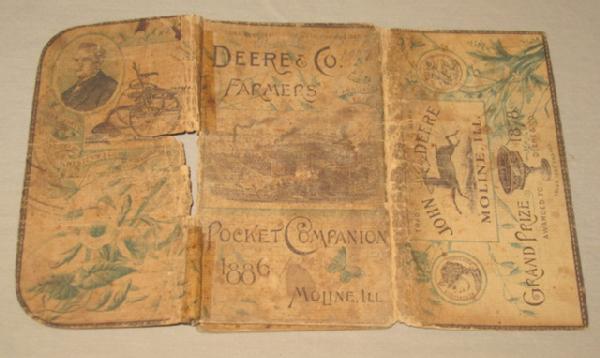 DEERE & CO.
FARMERS'
POCKET COMPANION
1886
MOLINE, ILL
JOHN DEERE
MOLINE, ILL.
GRAND PRIZE 1878
AWARDED TO